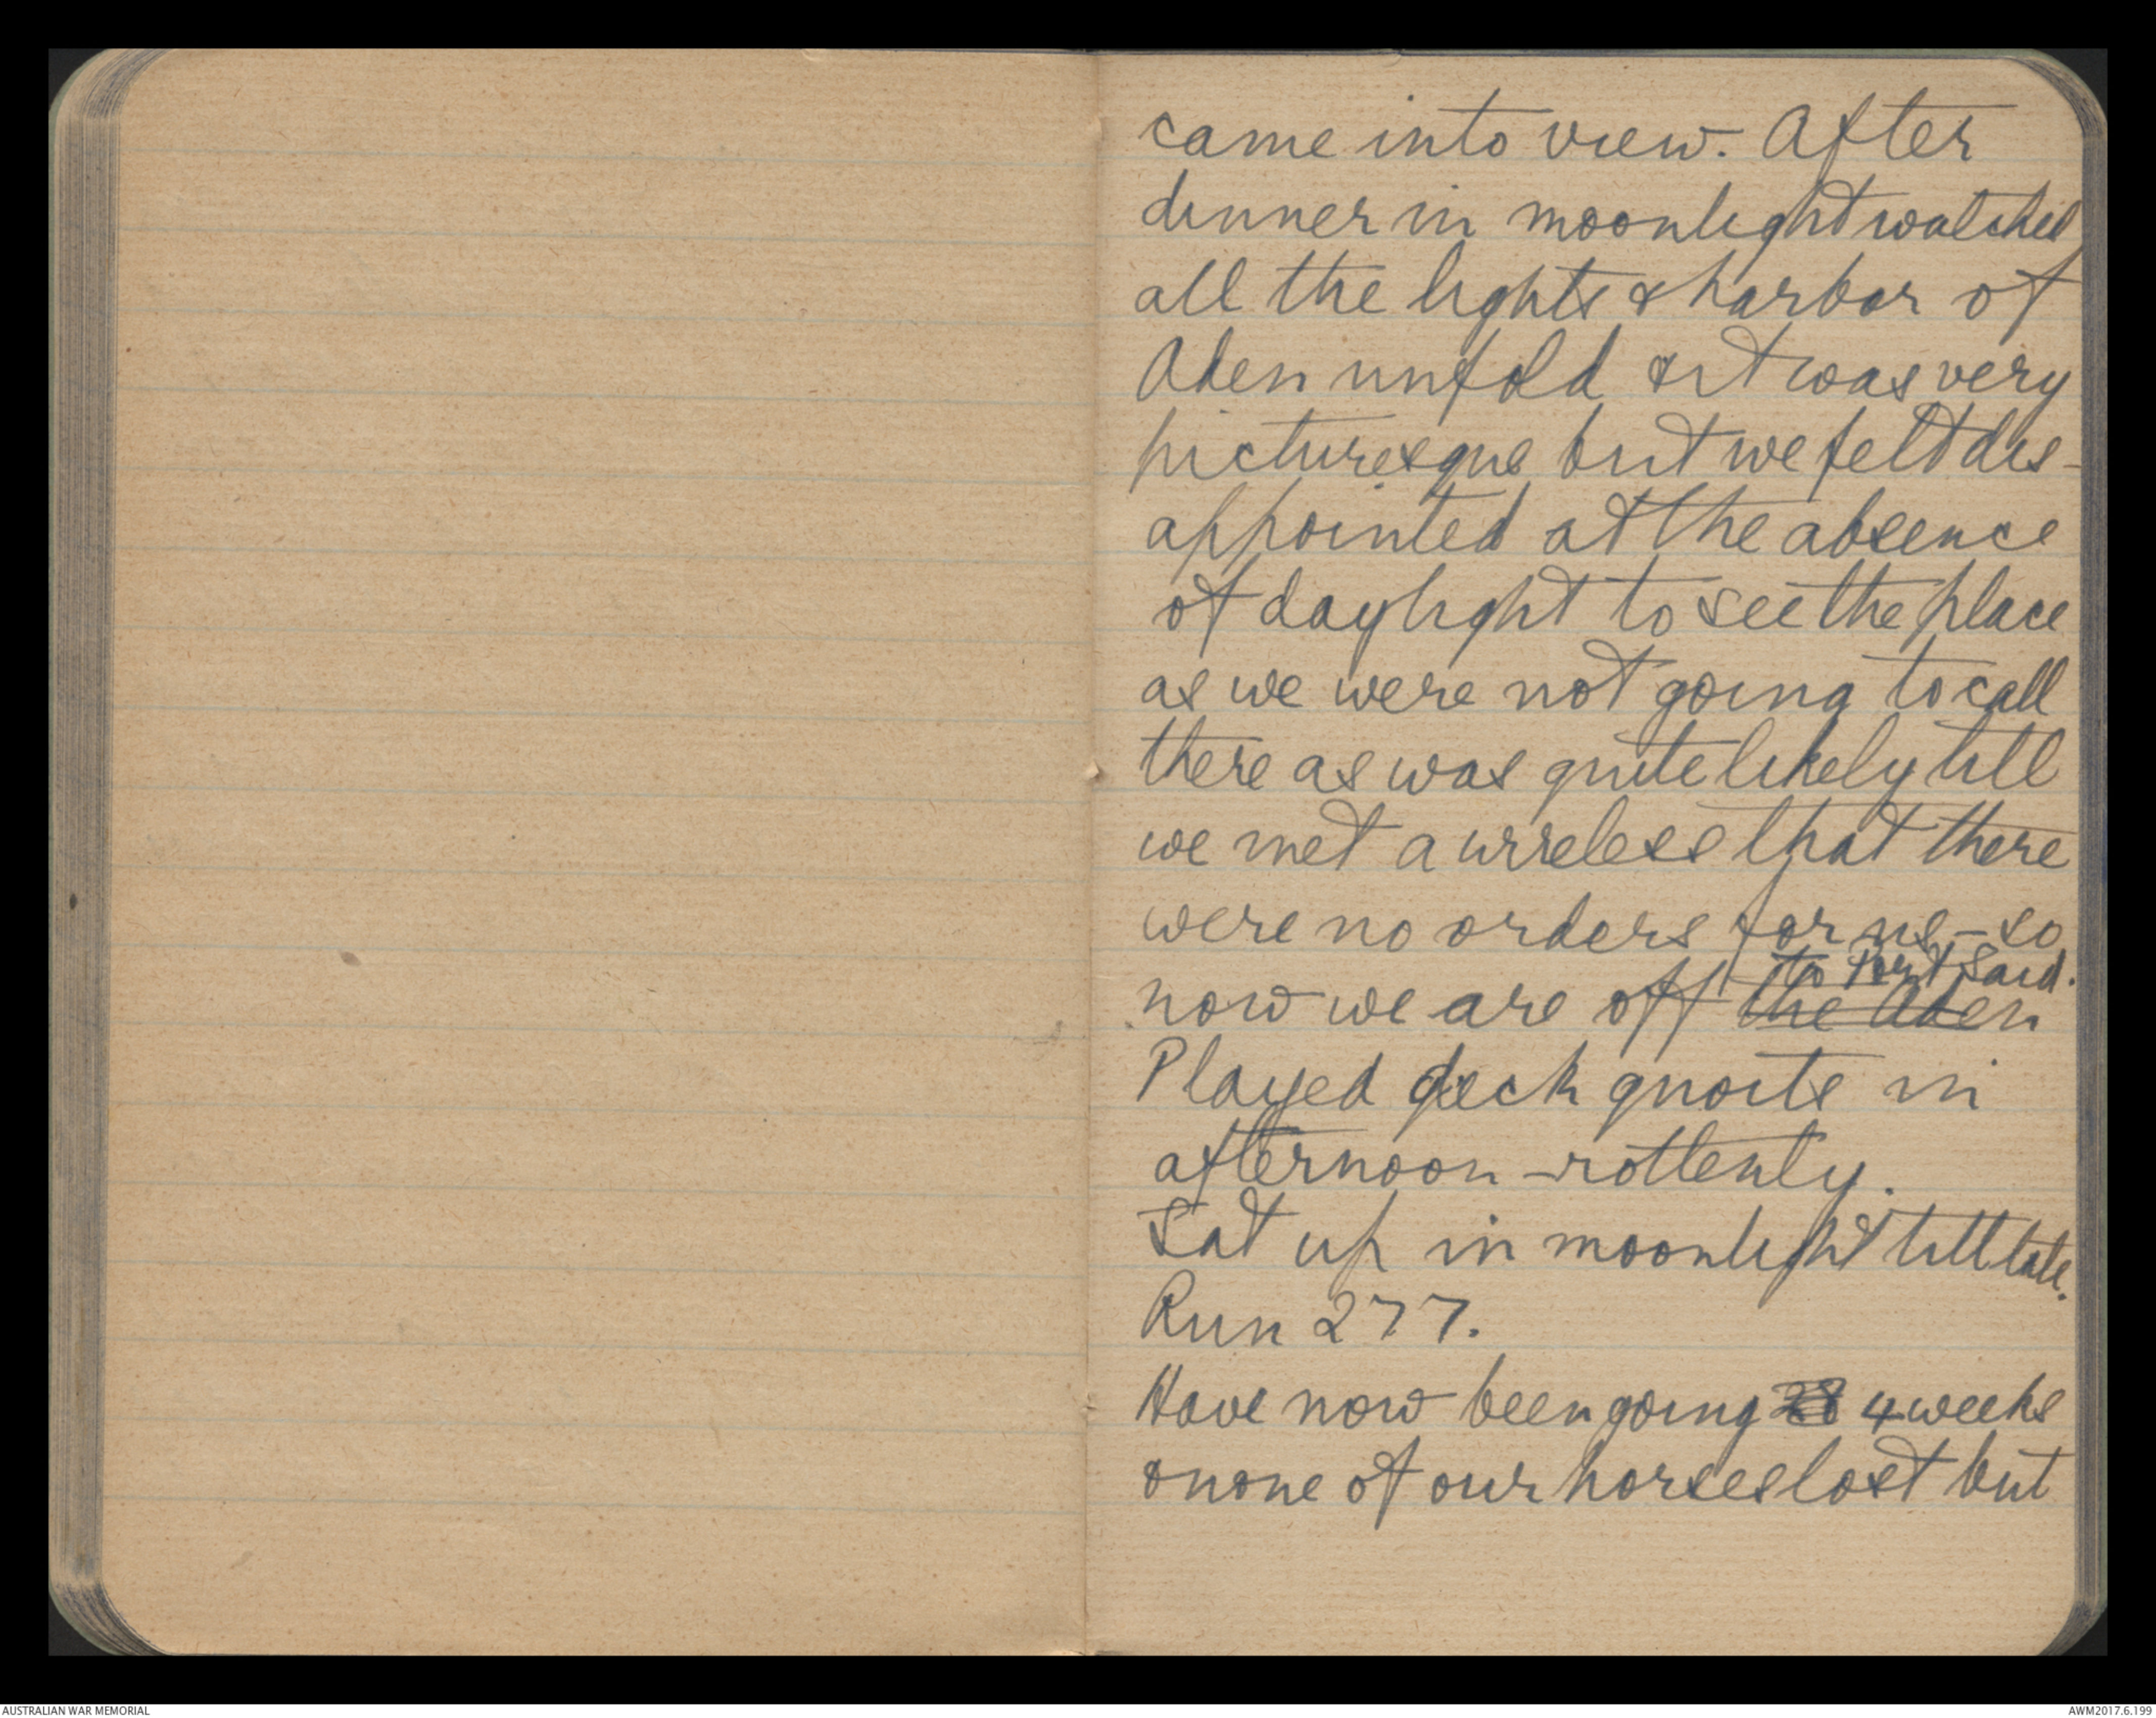 came into view. After
dinner in moonlight watched
all the lights & harbor of
Aden unfold & it was very
picturesque but we felt dis-
appointed at the absence
of daylight to see the place
as we were not going to call
there as was quite likely till
we met a wireless that there
were no orders for us - so
to Port Said.
now we are off the Aden
Played deck quoits in
afternoon - rottenly.
Sat up in moonlight till late.
Run 277.
Have now been going 28 4 weeks
& none of our horses lost but
AUSTRALIAN WAR MEMORIAL
AWM2017.6.199